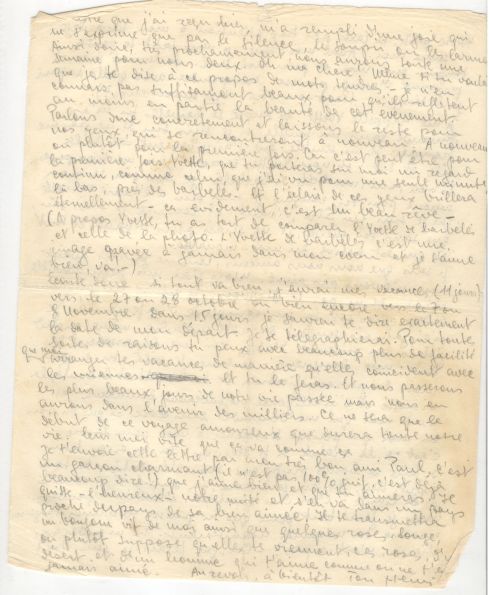 que j'ai reçu hier, m'a rempli d'une joie qui
ne s'exprime que par le silence, le soupir ou les larmes
Ainsi donc, tu prochainement nous aurons toute une
semaine pour nous deux. Oh ma chère! Même si tu voulais
que je te dise à ce propos de mots tendres - je n'en
connais pas suffisamment beaux pour qu'ils reflètent
au moins en partie la beauté de cet événement.
Parlons donc concrètement et laissons le reste pour
nos yeux, qui se rencontreront à nouveau. A nouveau
où plutôt pour la première fois. Car c'est peut être pour
la première fois Yvette, que tu poseras sur moi un regard
continu, comme celui, que j'ai vu pour une seule minute
là bas, près des barbelés. Et l'éclair de ces yeux brillera
éternellement - ça évidement, c'est un beau rêve -
(A propos Yvette, tu as tort de comparer l'Yvette de barbelés
et celle de la photo. L'Yvette de barbelés c'est une
image gravée à jamais dans mon coeur et je t'aime
bien, va! -)
donc si tout va bien, j'aurai mes vacances (11 jours)
vers le 27 ou 28 octobre ou bien encore vers le 7 ou
8 Novembre. Dans 15 jours je saurai te dire exactement
la date de mon départ. Je te télégraphierai. Pour toute
sorte de raisons tu peux avec beaucoup plus de facilité
que moi arranger tes vacances de manière qu'elles coïncident avec
les miennes et tu le feras. Et nous passerons
les plus beaux jours de notre vie passée mais nous en
aurons dans l'avenir des milliers. Ce ne sera que le
début de ce voyage amoureux que durera toute notre
vie. Ecris moi vite que ça va comme ça
Je t'envoie cette lettre par mon très bon ami Paul, c'est
un garçon charmant (il n'est pas 100% juif, c'est déjà
beaucoup dire!) que j'aime bien et que tu aimeras. Il
quitte - l'heureux - notre unité et s'en va dans un pays
proche du pays de sa bien aimée. Il te transmettra
un bonjour vif de moi ainsi que quelques roses rouges,
ou plutôt suppose qu'elles te viennent, ces roses, d'
désert et d'un homme qui t'aime comme on ne t'a
jamais aimé. Au revoir, à bientôt Ton Henri